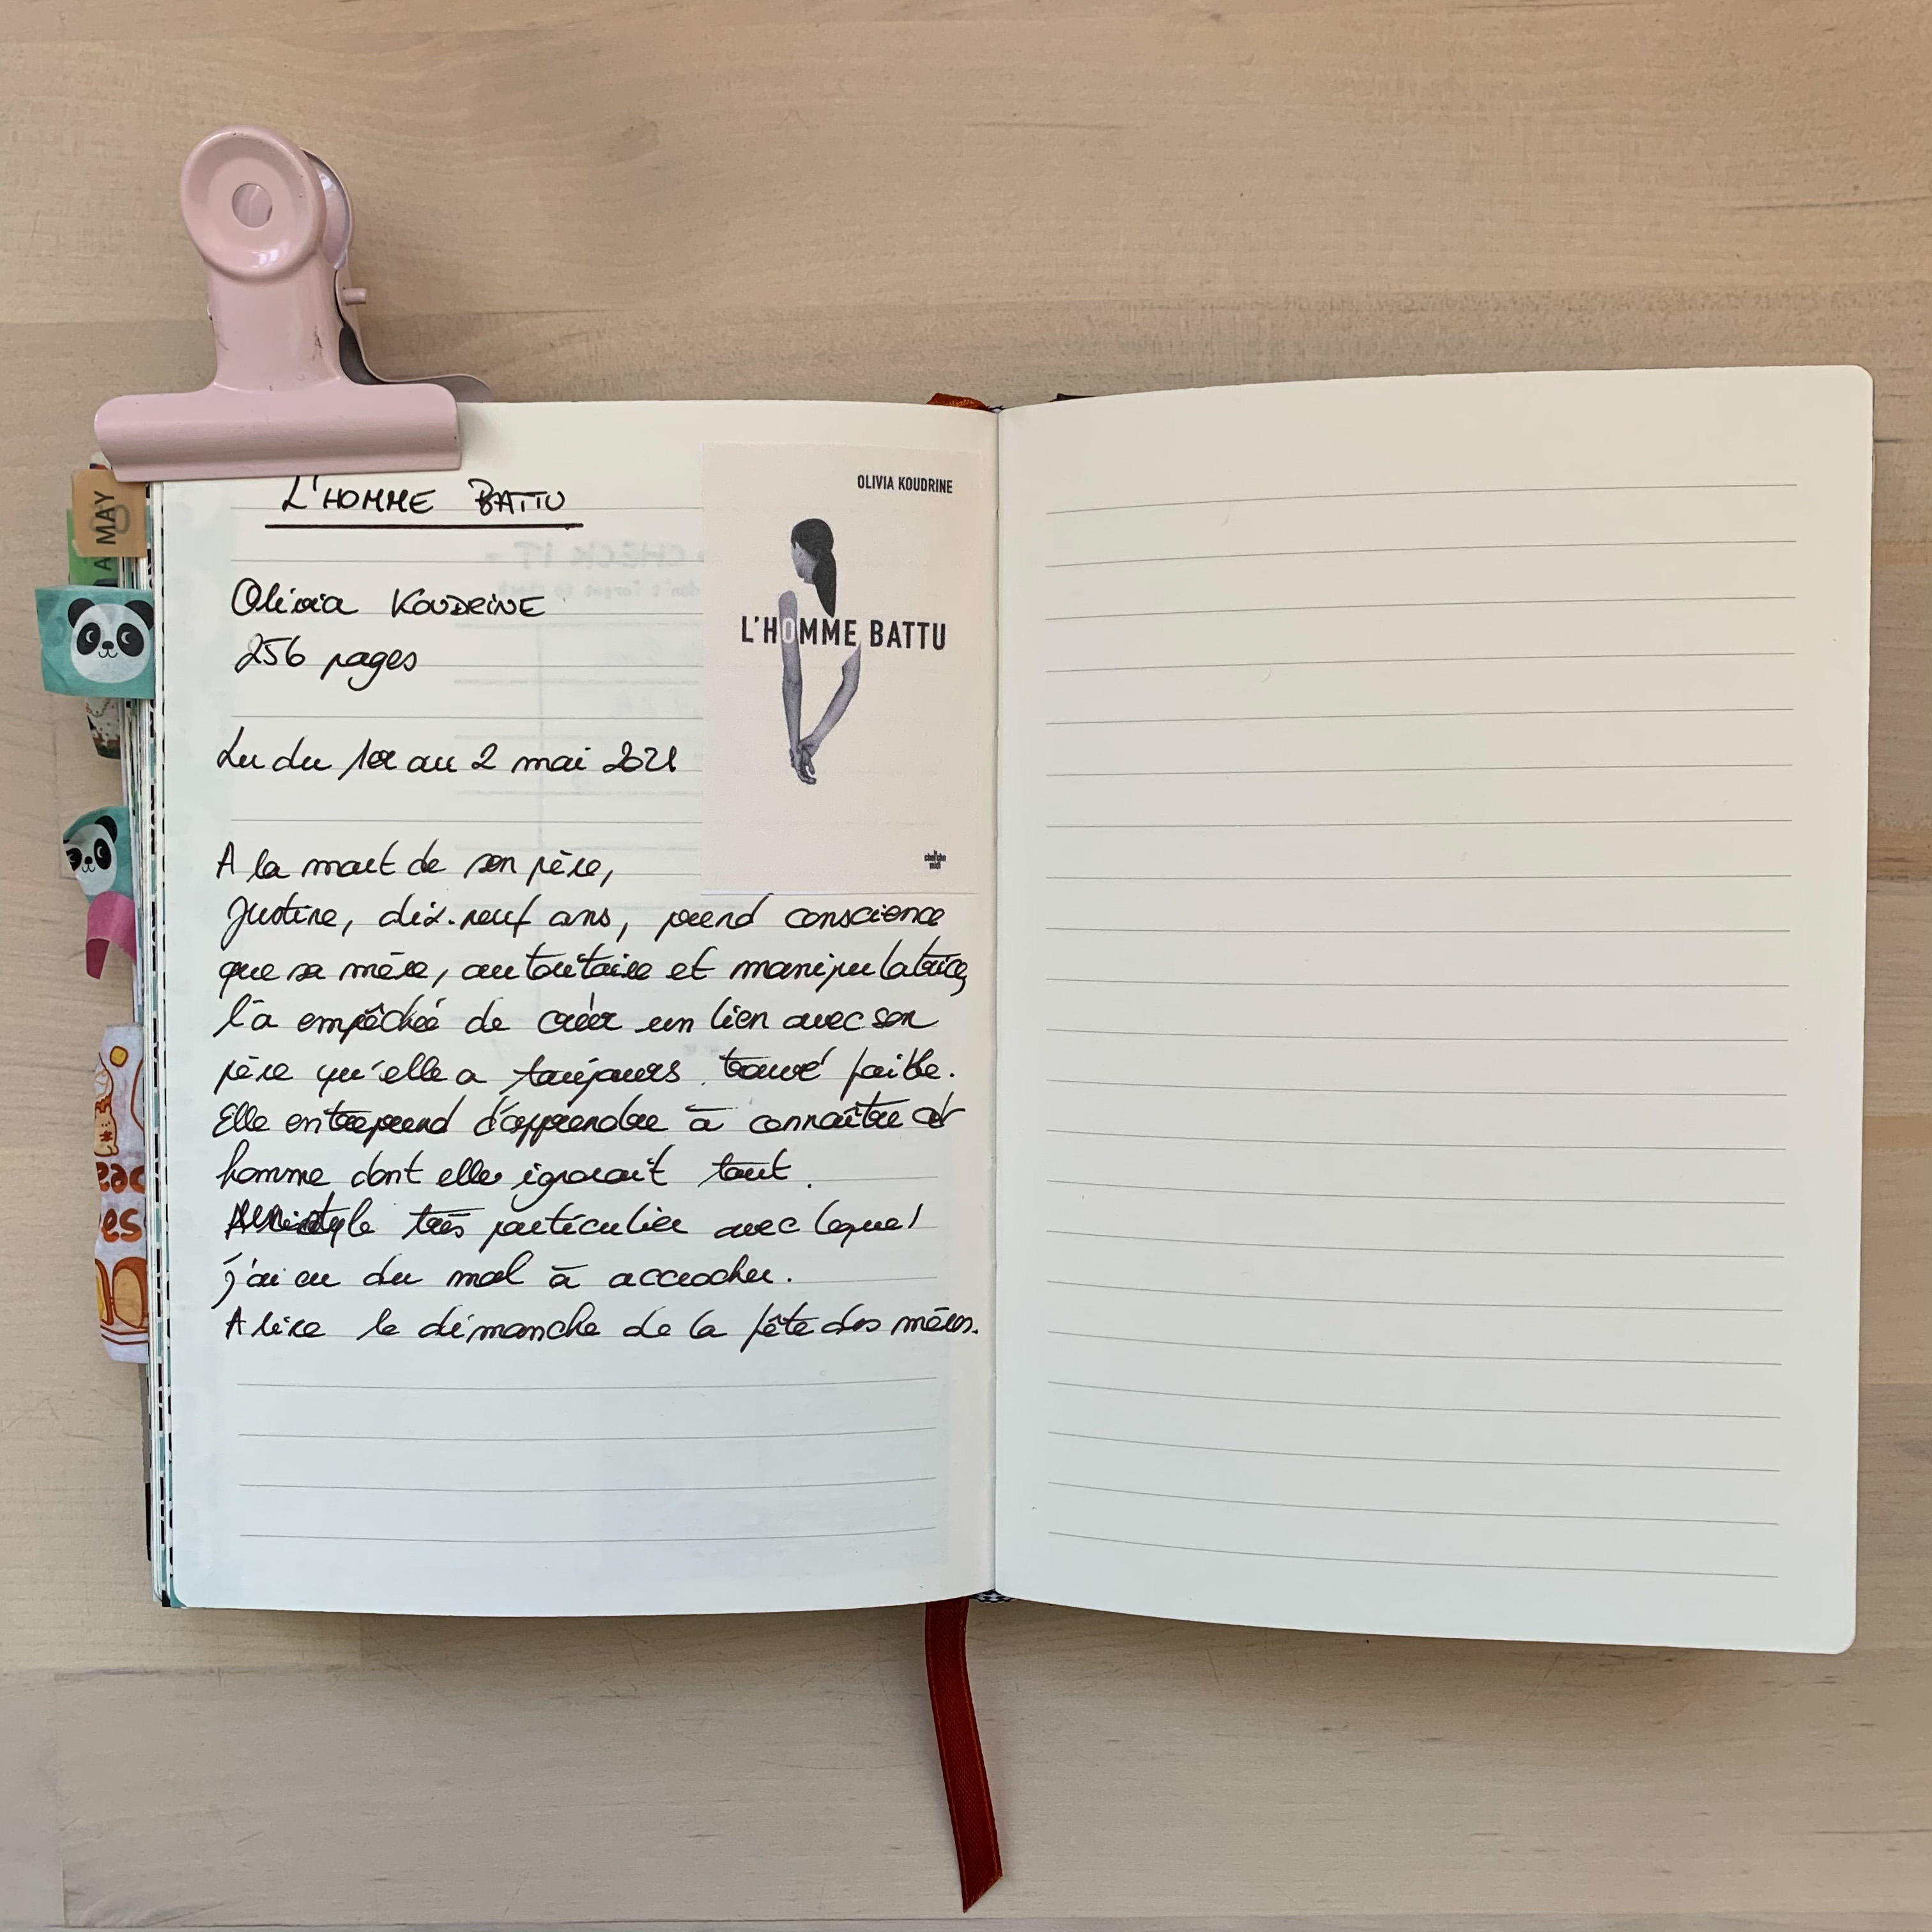 L'HOMME BATTU
Olivia KOUDRINE
256 pages
Lu du 1er au 2 mai 2021
A la mort de son père,
Justine, dix-neuf ans, prend conscience
que sa mère, autoritaire et manipulatrice,
l'a empêchée de créer un lien avec son
père qu'elle a toujours trouvé faible.
Elle entreprend d'apprendre à connaître cet
homme dont elle ignorait tout.
style très particulier avec lequel
j'ai eu du mal à accrocher.
A lire le dimanche de la fête des mères.
OLIVIA KOUDRINE
L'HOMME BATTU
cherche
midi
MAY